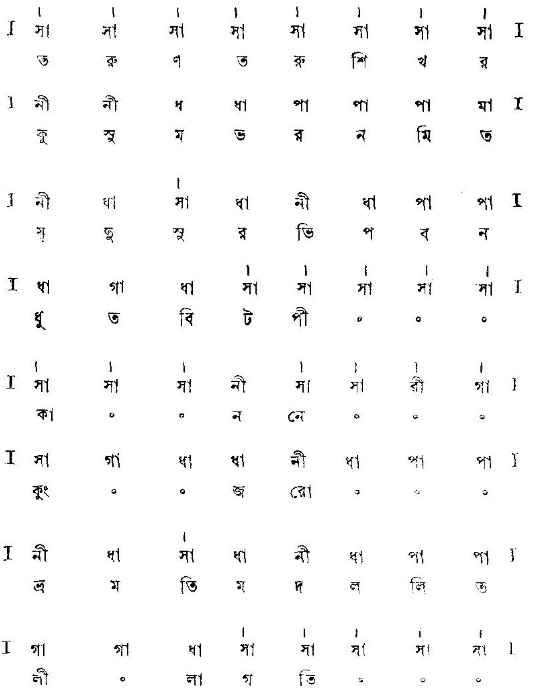 I সা সা সা সা সা সা সা সা I
ত রু ণ ত রু শি খ র
I নী নী ধ ধা পা পা পা মা I
কু সু ম ভ র ন মি ত
I নী ধা সা ধা নী ধা পা পা I
মৃ দু সু র ভি প ব ন
I ধা গা ধা সা সা সা সা সা I
ধু ত বি ট পী ০ ০ ০
I সা সা সা নী সা সা রী গা I
কা ০ ০ ন নে ০ ০ ০
I সা গা ধা ধা নী ধা পা পা I
কুং ০ ০ জ রো ০ ০ ০
I নী ধা সা ধা নী ধা পা পা I
ভ্র ম তি ম দ ল লি ত
I গা গা ধা সা সা সা সা I
লী ০ লা গ তি ০ ০ ০